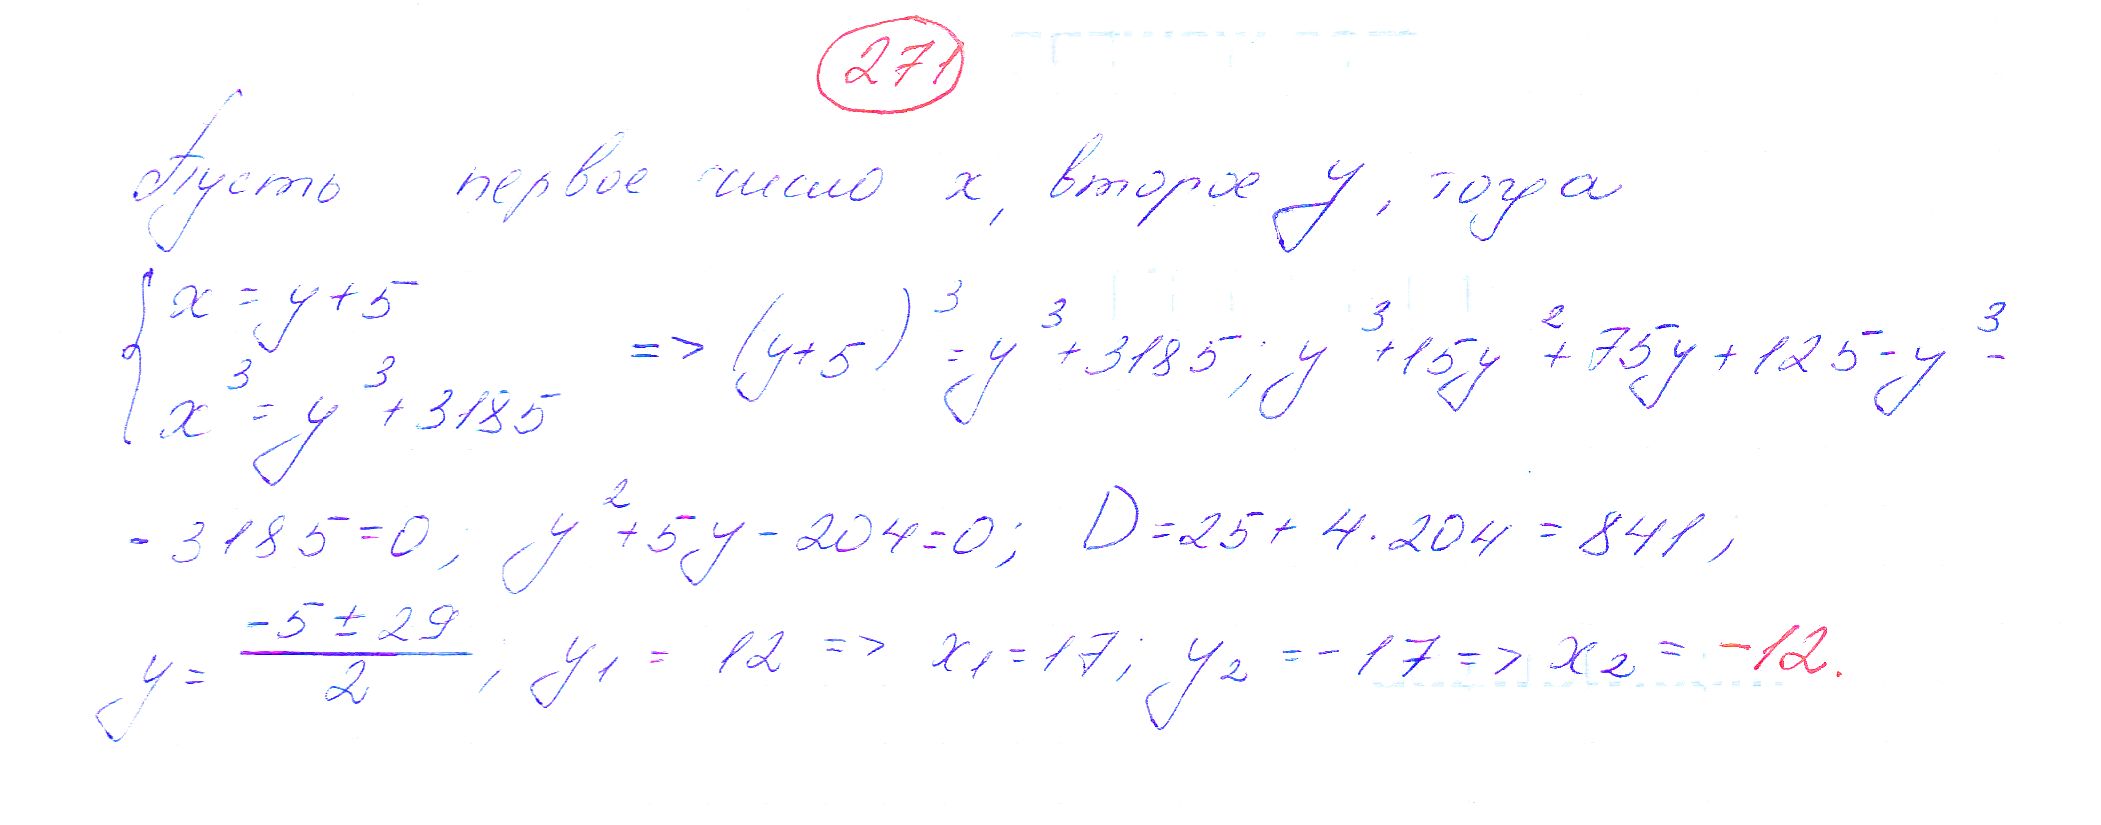 271
Пусть первое число x, второе y, тогда
{ x = y + 5
x³ = y³ + 3185 => (y+5)³ = y³ + 3185; y³ + 15y² + 75y + 125 - y³ -
- 3185 = 0; y² + 5y - 204 = 0; D = 25 + 4 · 204 = 841;
y = (-5 ± 29)/2; y₁ = 12 => x₁ = 17; y₂ = -17 => x₂ = -12.